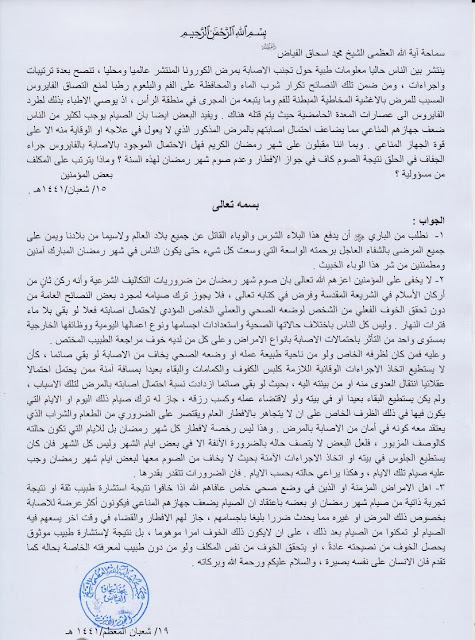 بسم الله الرحمن الرحيم
سماحة آية الله العظمى الشيخ محمد اسحاق الفياض
ينتشر بين الناس حاليا معلومات طبية حول تجنب الاصابة بمرض الكورونا المنتشر عالميا ومحليا ، تنصح بعدة ترتيبات
واجراءات ، ومن ضمن تلك النصائح تكرار شرب الماء والمحافظة على الفم والبلعوم رطبا لمنع التصاق الفايروس
المسبب للمرض بالاغشية المخاطية المبطنة للفم وما يتبعه من المجرى في منطقة الرأس ، اذ يوصي الاطباء بذلك لطرد
الفايروس الى عصارات المعدة الحامضية حيث يتم قتله هناك . ويفيد البعض ايضا بان الصيام يوجب لكثير من الناس
ضعف جهازهم المناعي مما يضاعف احتمال اصابتهم بالمرض المذكور الذي لا يعول في علاجه او الوقاية منه الا على
قوة الجهاز المناعي . وبما اننا مقبلون على شهر رمضان الكريم فهل الاحتمال الموجود بالاصابة بالفايروس جراء
الجفاف في الحلق نتيجة الصوم كاف في جواز الافطار وعدم صوم شهر رمضان لهذه السنة ؟ وماذا يترتب على المكلف
من مسؤولية ؟ بعض المؤمنين
١٥/ شعبان/١٤٤١هـ .
بسمه تعالى
الجواب :
١- نطلب من الباري أن يدفع هذا البلاء الشرس والوباء القاتل عن جميع بلاد العالم ولاسيما من بلادنا ويمن على
جميع المرضى بالشفاء العاجل برحمته الواسعة التي وسعت كل شيء حتى يكون الناس في شهر رمضان المبارك آمنين
ومطمئنين من شر هذا الوباء الخبيث .
٢- لا يخفى على المؤمنين اعزهم الله تعالى بان صوم شهر رمضان من ضروريات التكاليف الشرعية وأنه ركن ثانٍ من
أركان الأسلام في الشريعة المقدسة وفرض في كتابه تعالى ، فلا يجوز ترك صيامه لمجرد بعض النصائح العامة من
دون تحقق الخوف الفعلي من الشخص لوضعه الصحي والعملي الخاص المؤدي لاحتمال اصابته فعلا لو بقي بلا ماء
فترات النهار . وليس كل الناس باختلاف حالاتها الصحية واستعدادات اجسامها ونوع اعمالها اليومية ووظائفها الخارجية
بمستوى واحد من التأثر باحتمالات الاصابة بانواع الامراض وعلى كل من لديه خوف مراجعة الطبيب المختص .
وعليه فمن كان لظرفه الخاص ولو من ناحية طبيعة عمله او وضعه الصحي يخاف من الاصابة لو بقي صائما ، كأن
لا يستطيع اتخاذ الاجراءات الوقائية اللازمة كلبس الكفوف والكمامات والبقاء بعيدا بمسافة آمنة ممن يحتمل احتمالا
عقلائيا انتقال العدوى منه او من بيئته اليه ، بحيث لو بقي صائما ازدادت نسبة احتمال اصابته بالمرض لتلك الاسباب ،
ولم يكن يستطيع البقاء بعيدا او في بيته ولو لاقتضاء عمله وكسب رزقه ، جاز له ترك صيام ذلك اليوم او الايام التي
يكون فيها في ذلك الظرف الخاص على ان لا يتجاهر بالافطار العام ويقتصر على الضروري من الطعام والشراب الذي
يعتقد معه كونه في أمان من الاصابة بالمرض . وهذا ليس رخصة لافطار كل شهر رمضان بل للايام التي تكون حالته
كالوصف المزبور ، فلعل البعض لا يتصف حاله بالضرورة الآنفة الا في بعض ايام الشهر وليس كل الشهر فان كان
يستطيع الجلوس في بيته او اتخاذ الاجراءات الآمنة بحيث لا يخاف من الصوم معها لبعض ايام شهر رمضان وجب
عليه صيام تلك الايام ، وهكذا يراعي حالته بحسب الايام . فان الضرورات تتقدر بقدرها .
٣- اهل الامراض المزمنة او الذين في وضع صحي خاص عافاهم الله اذا خافوا نتيجة استشارة طبيب ثقة او نتيجة
تجربة ذاتية من صيام شهر رمضان او بعضه باعتقاد ان الصيام يضعف جهازهم المناعي فيكونون أكثر عرضة للاصابة
بخصوص ذلك المرض او غيره مما يحدث ضررا بليغا باجسامهم ، جاز لهم الافطار والقضاء في وقت اخر يسعهم فيه
الصيام لو تمكنوا من الصيام بعد ذلك ، على ان لايكون ذلك الخوف امرا موهوما ، بل نتيجة لإستشارة طبيب موثوق
يحصل الخوف من نصيحته عادةً ، او يتحقق الخوف من نفس المكلف ولو من دون طبيب لمعرفته الخاصة بحاله كما
تقدم فان الانسان على نفسه بصيرة ، والسلام عليكم ورحمة الله وبركاته .
١٩/ شعبان المعظم/١٤٤١ هـ